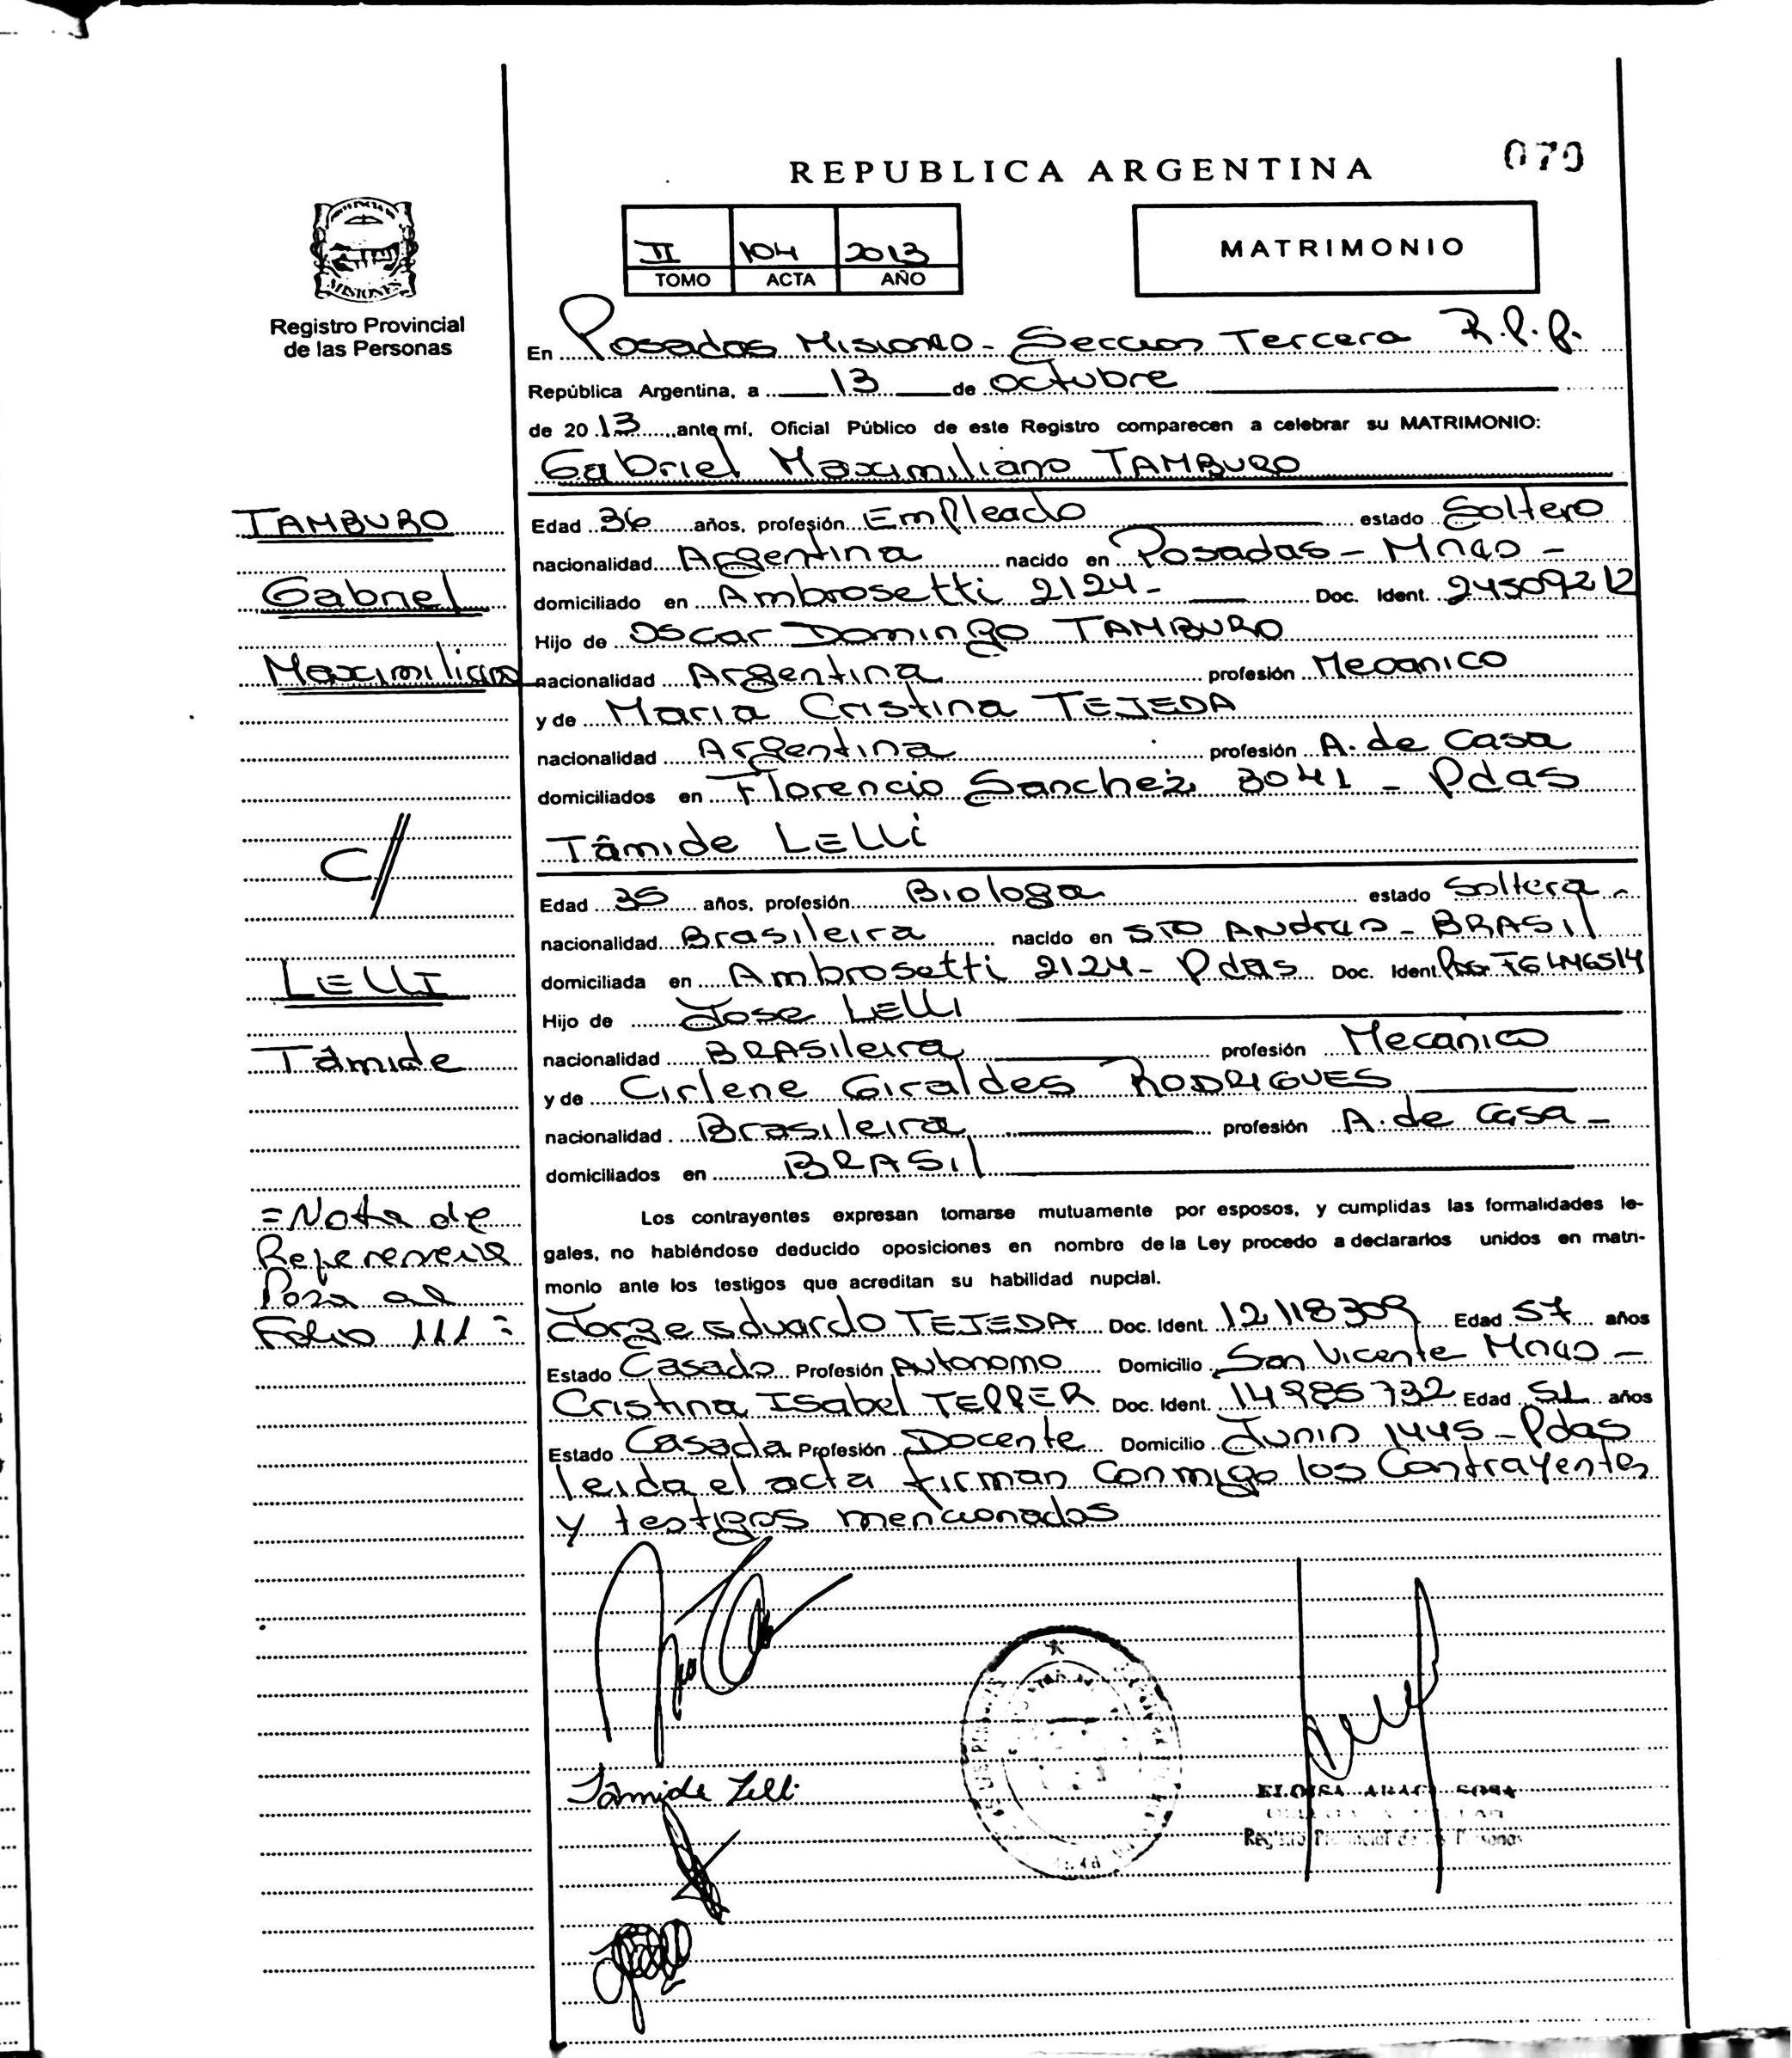 REPUBLICA ARGENTINA
II 104 2013
TOMO ACTA AÑO
MATRIMONIO
MISIONES
Registro Provincial
de las Personas
En Posadas Misiones - Seccion Tercera R.P.P.
República Argentina, a 13 de octubre
de 2013 ante mí, Oficial Público de este Registro comparecen a celebrar su MATRIMONIO:
Gabriel Maximiliano TAMBURO
Edad 36 años, profesión Empleado estado Soltero
nacionalidad Argentina nacido en Posadas - Mnes -
domiciliado en Ambrosetti 2124 - Doc. Ident. 24509212
Hijo de Oscar Domingo TAMBURO
nacionalidad Argentina profesión Mecanico
y de Maria Cristina TEJEDA
nacionalidad Argentina profesión A. de Casa
domiciliados en Florencio Sanchez 3041 - Pdas
Tâmide LELLI
Edad 35 años, profesión Biologa estado Soltera -
nacionalidad Brasileira nacido en STO ANdres - BRASil
domiciliada en Ambrosetti 2124 - Pdas Doc. Ident.
Hijo de Jose LELLI
nacionalidad BRASileira profesión Mecanico
y de Cirlene Giraldes RODRIGUES
nacionalidad Brasileira profesión A. de Casa -
domiciliados en BRASil
Los contrayentes expresan tomarse mutuamente por esposos, y cumplidas las formalidades le-
gales, no habiéndose deducido oposiciones en nombre de la Ley procedo a declararlos unidos en matri-
monio ante los testigos que acreditan su habilidad nupcial.
Jorge Eduardo TEJEDA Doc. Ident. 12118309 Edad 57 años
Estado Casado Profesión Autonomo Domicilio San Vicente Mnes -
Cristina Isabel TEPPER Doc. Ident. 14985732 Edad 51 años
Estado Casada Profesión Docente Domicilio Junin 1445 - Pdas
leida el acta firman conmigo los Contrayentes
y testigos mencionados
TAMBURO
Gabriel
Maximiliano
C/
LELLI
Tâmide
= Nota de
Referencia
Pasa al
Folio 111 =
Tâmide Lelli
Registro Provincial de las Personas